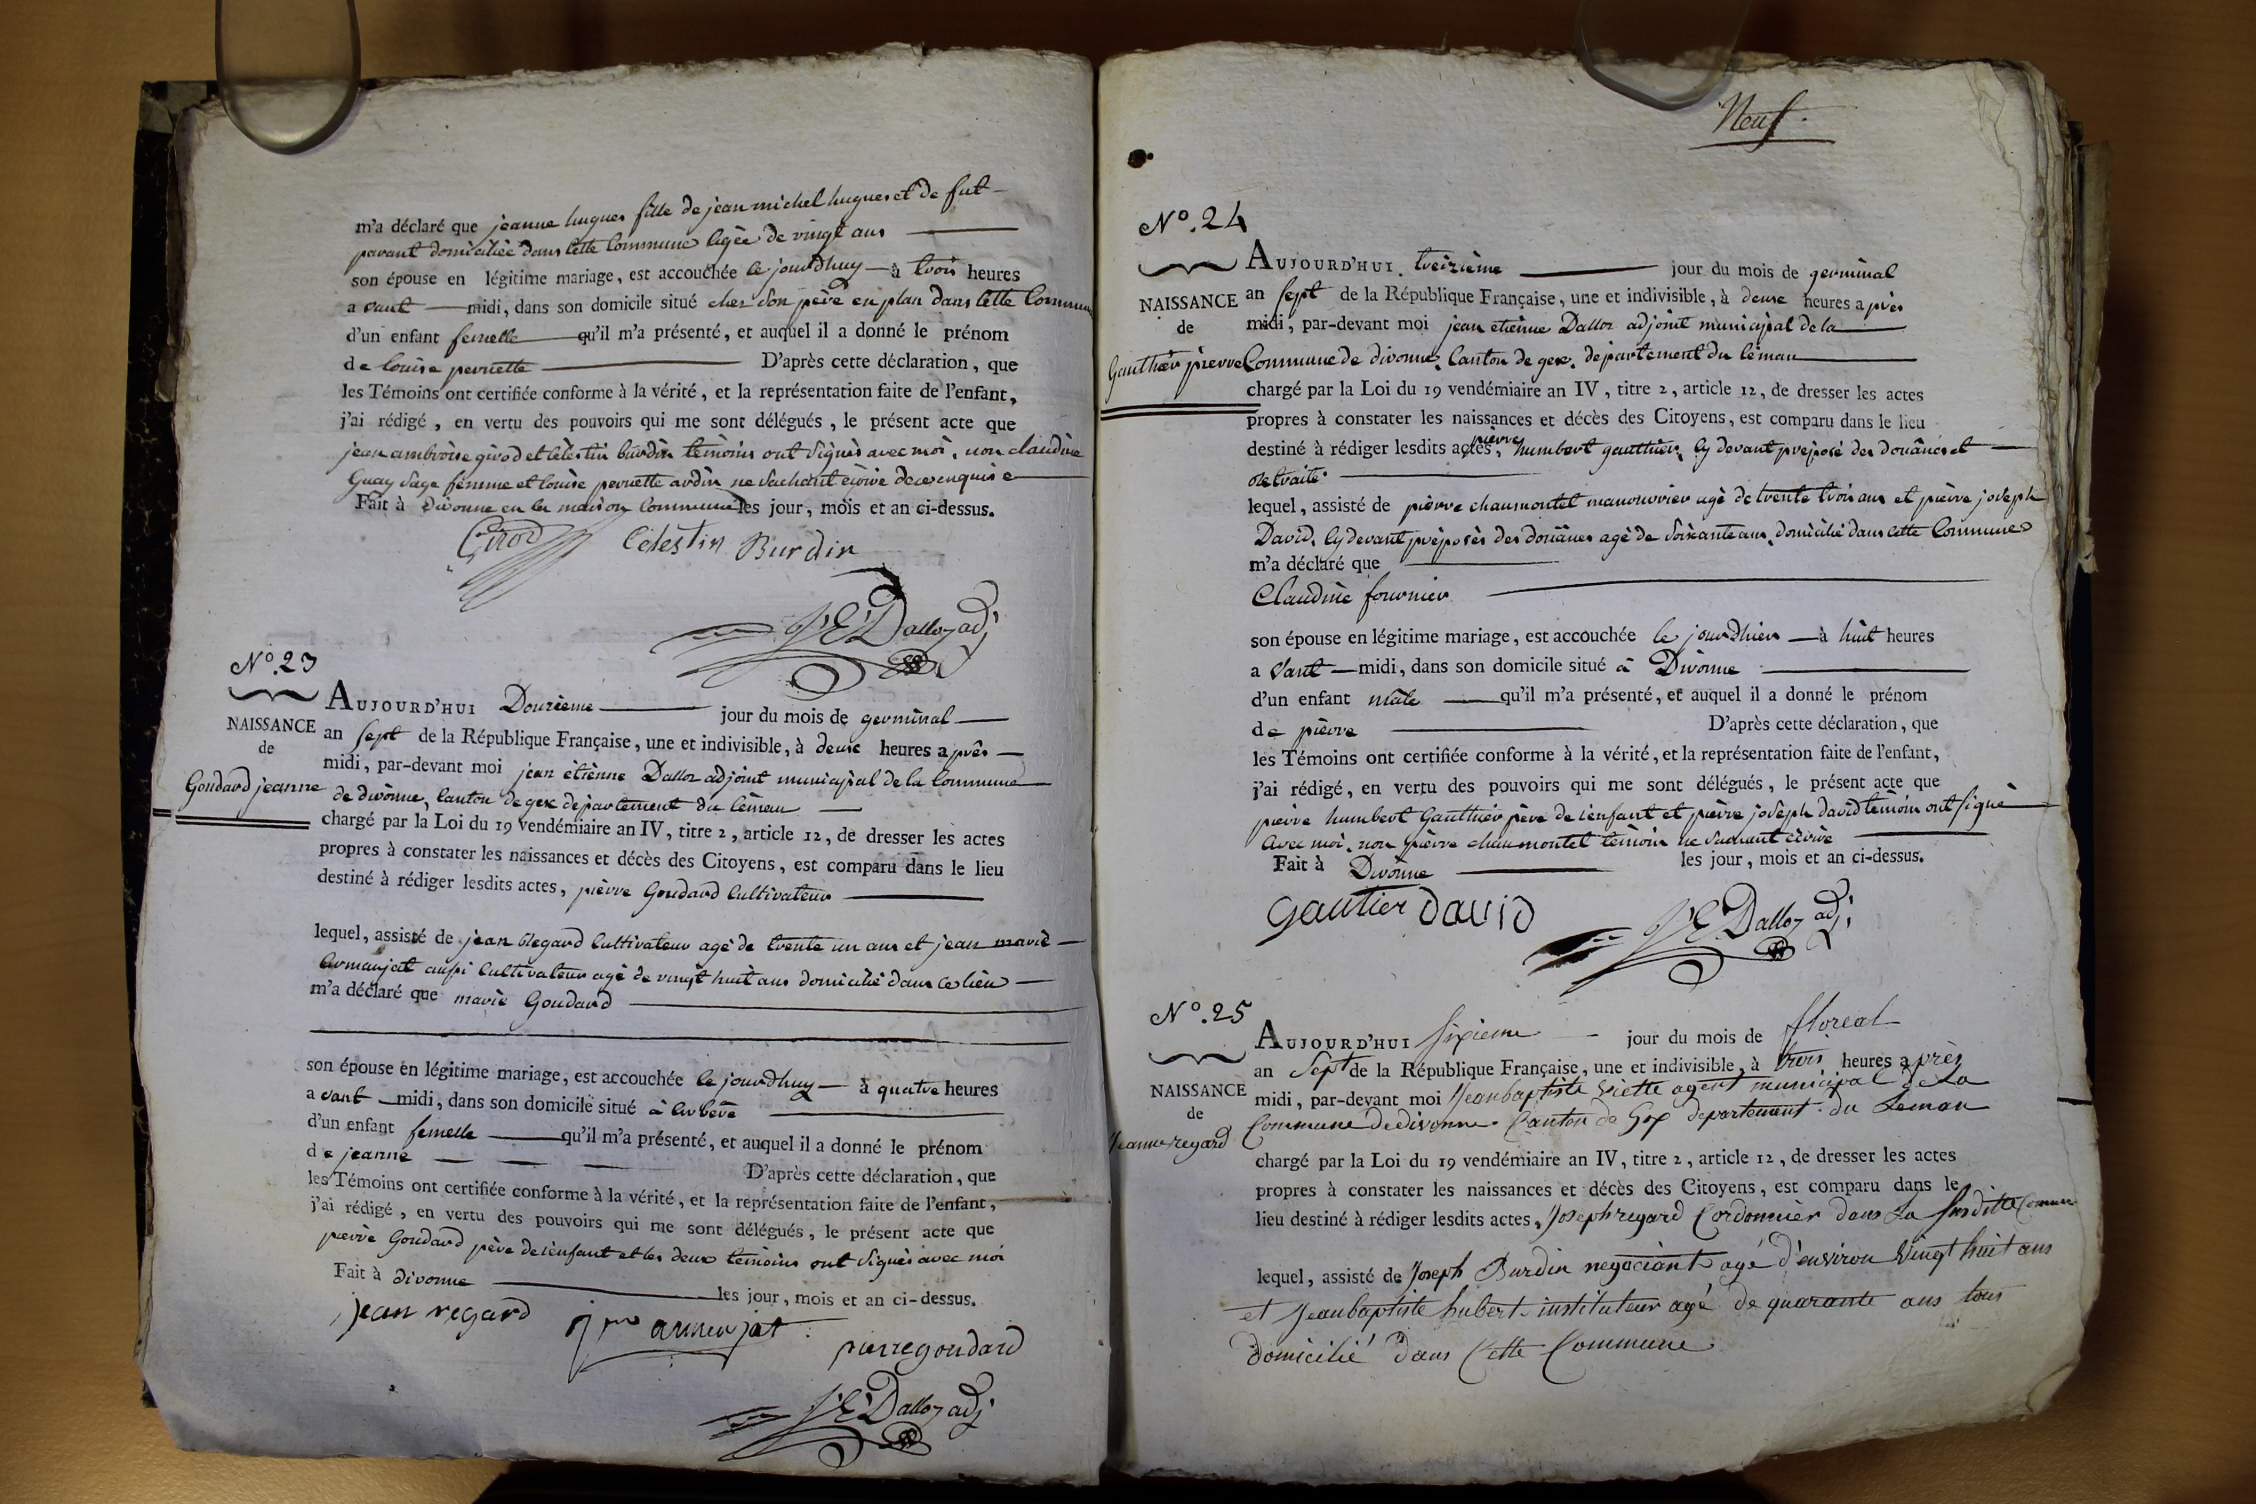 m'a déclaré que jeanne hugues fille de jean michel hugues et de fut
parant domiciliée dans cette Commune agée de vingt ans
son épouse en légitime mariage, est accouchée le jourdhuy à trois heures
avant midi, dans son domicile situé ches son père en plan dans cette Commune
d'un enfant femelle qu'il m'a présenté, et auquel il a donné le prénom
de louise pernette D'après cette déclaration, que
les Témoins ont certifiée conforme à la vérité, et la représentation faite de l'enfant,
j'ai rédigé, en vertu des pouvoirs qui me sont délégués, le présent acte que
jean ambroise girod et célestin burdin témoins ont signés avec moi, non claudine
Guay sage femme et louise pernette ardin ne sachant écrire de ce enquise
Fait à Divonne en la maison Commune les jour, mois et an ci-dessus.
Girod Célestin Burdin
J E Dalloz adj
N°. 23
NAISSANCE
de
Goudard jeanne
AUJOURD'HUI Douzième jour du mois de germinal
an sept de la République Française, une et indivisible, à deux heures après
midi, par-devant moi jean étienne Dalloz adjoint municipal de la Commune
de divonne, Canton de gex departement du léman
chargé par la Loi du 19 vendémiaire an IV, titre 2, article 12, de dresser les actes
propres à constater les naissances et décès des Citoyens, est comparu dans le lieu
destiné à rédiger lesdits actes, pièrre Goudard Cultivateur
lequel, assisté de jean Regard Cultivateur agé de trente un ans et jean marie
armanjat aussi Cultivateur agé de vingt huit ans domicilié dans ce lieu
m'a déclaré que marie Goudard
son épouse en légitime mariage, est accouchée le jourdhuy à quatre heures
avant midi, dans son domicile situé à arbere
d'un enfant femelle qu'il m'a présenté, et auquel il a donné le prénom
de jeanne D'après cette déclaration, que
les Témoins ont certifiée conforme à la vérité, et la représentation faite de l'enfant,
j'ai rédigé, en vertu des pouvoirs qui me sont délégués, le présent acte que
pierre Goudard père de lenfant et les deux témoins ont signés avec moi
Fait à divonne les jour, mois et an ci-dessus.
jean regard armenjat
pierre goudard
J E Dalloz adj
Neuf.
N°. 24
NAISSANCE
de
Gauthier pierre
AUJOURD'HUI treizième jour du mois de germinal
an sept de la République Française, une et indivisible, à deux heures après
midi, par-devant moi jean etienne Dalloz adjoint municipal de la
Commune de divonne, Canton de gex, departement du léman
chargé par la Loi du 19 vendémiaire an IV, titre 2, article 12, de dresser les actes
propres à constater les naissances et décès des Citoyens, est comparu dans le lieu
destiné à rédiger lesdits actes, pièrre humbert gauthier, cy devant préposé des douânes et
retraité
lequel, assisté de pièrre chaumontel manouvrier agé de trente trois ans et pièrre joseph
David, cy devant préposés des douânes agé de soixante ans, domicilié dans cette Commune
m'a déclaré que
Claudine fournier
son épouse en légitime mariage, est accouchée le jourdhier à huit heures
avant midi, dans son domicile situé à Divonne
d'un enfant mâle qu'il m'a présenté, et auquel il a donné le prénom
de pièrre D'après cette déclaration, que
les Témoins ont certifiée conforme à la vérité, et la représentation faite de l'enfant,
j'ai rédigé, en vertu des pouvoirs qui me sont délégués, le présent acte que
pièrre humbert Gauthier père de lenfant et pièrre joseph david témoin ont signé
avec moi, non pièrre chaumontel témoin ne sachant écrire
Fait à Divonne les jour, mois et an ci-dessus.
Gautier David
J E Dalloz adj
N°. 25
NAISSANCE
de
Jeanne regard
AUJOURD'HUI sixieme jour du mois de floreal
an Sept de la République Française, une et indivisible, à trois heures après
midi, par-devant moi Jeanbaptiste viette agent municipal de La
Commune de divonne. Canton de Gex departement du Leman
chargé par la Loi du 19 vendémiaire an IV, titre 2, article 12, de dresser les actes
propres à constater les naissances et décès des Citoyens, est comparu dans le
lieu destiné à rédiger lesdits actes, Joseph regard Cordonnier dans La susditte Commune
lequel, assisté de Joseph Burdin negociant agé d'environ vingt huit ans
et Jeanbaptiste hubert instituteur agé de quarante ans tous
domicilié dans Cette Commune